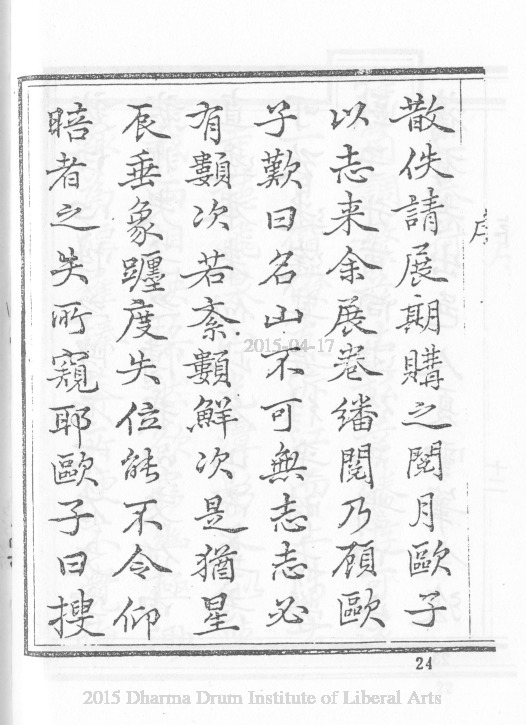 序
散佚請展期購之閱月歐子
以志来余展卷繙閱乃顧歐
子歎曰名山不可無志志必
有類次若紊類鮮次是猶星
辰垂象躔度失位能不令仰
者之失所窺耶歐子曰搜
24
2015-04-17
2015 Dharma Drum Institute of Liberal Arts